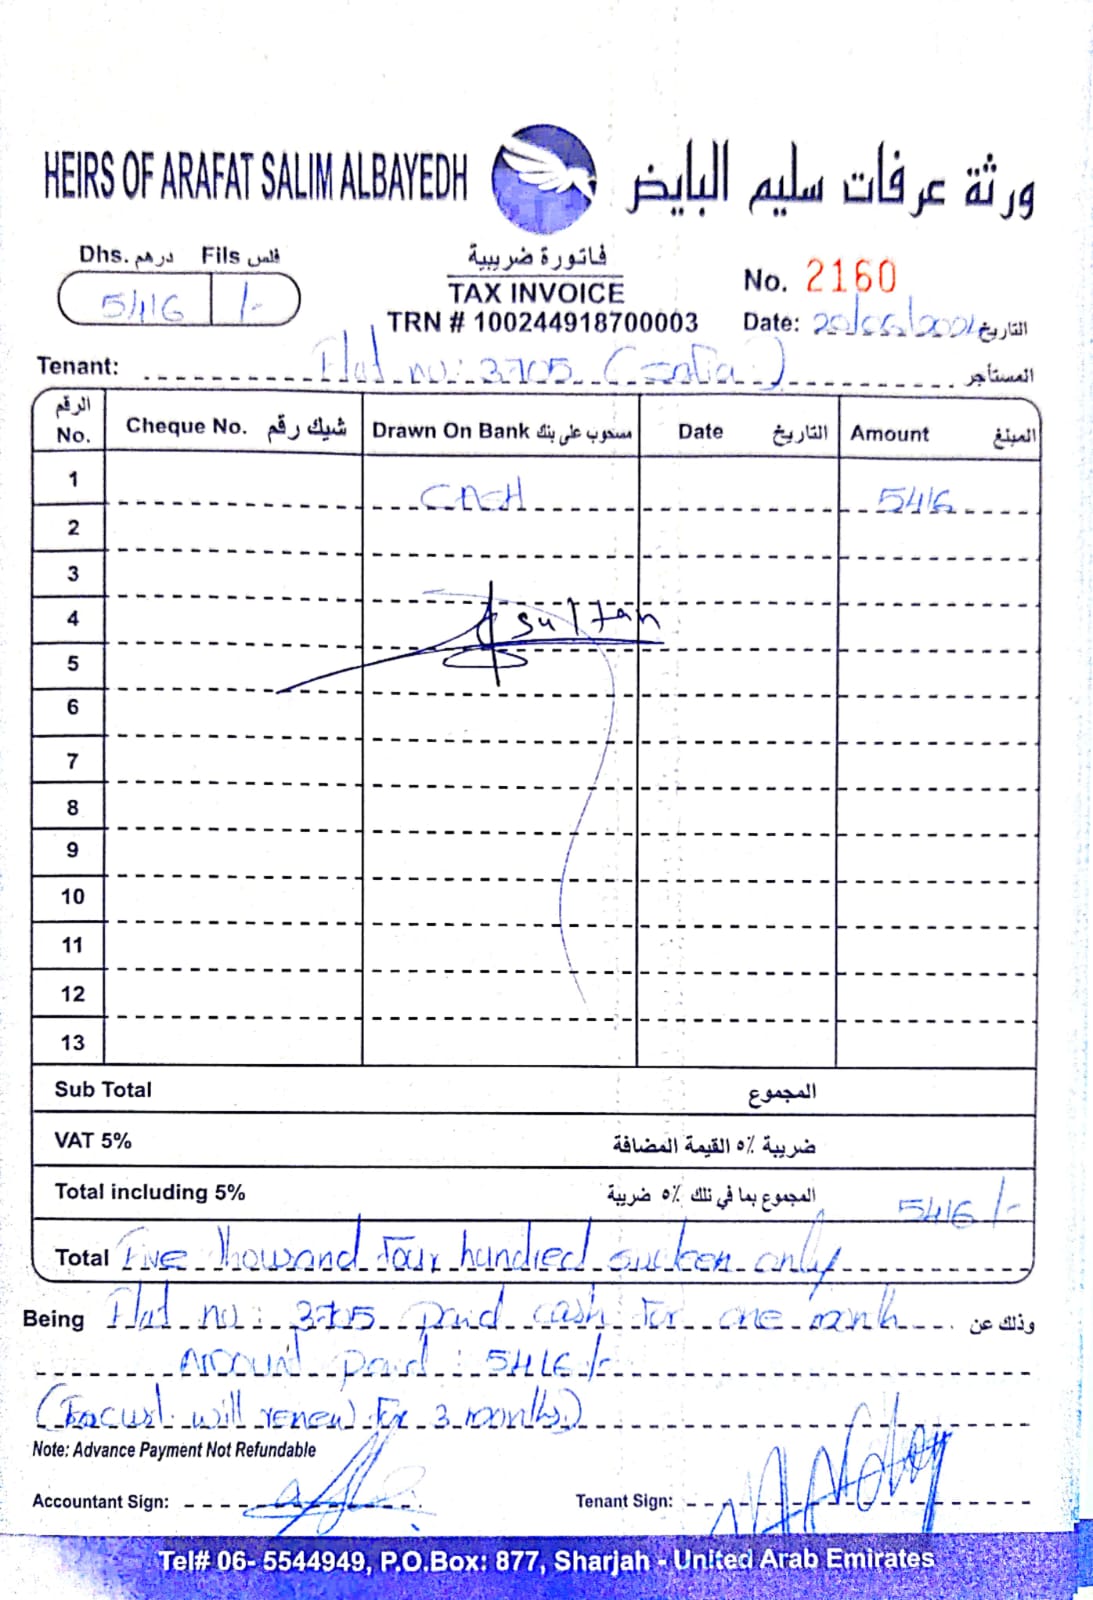 HEIRS OF ARAFAT SALIM ALBAYEDH ورثة عرفات سليم البايض
Dhs. درهم Fils فلس
5416 /-
فاتورة ضريبية
TAX INVOICE
TRN # 100244918700003
No. 2160
Date: التاريخ
Tenant: Flat no: 3705 المستأجر
الرقم No. Cheque No. شيك رقم Drawn On Bank مسحوب على بنك Date التاريخ Amount المبلغ
1 CASH 5416
2
3
4 Sultan
5
6
7
8
9
10
11
12
13
Sub Total المجموع
VAT 5% ضريبة ٥٪ القيمة المضافة
Total including 5% المجموع بما في ذلك ٥٪ ضريبة 5416/-
Total Five Thousand Four hundred sixteen only
Being Flat no: 3705 paid cash for one month وذلك عن
Amount paid: 5416/-
will renew for 3 months)
Note: Advance Payment Not Refundable
Accountant Sign: Tenant Sign:
Tel# 06- 5544949, P.O.Box: 877, Sharjah - United Arab Emirates